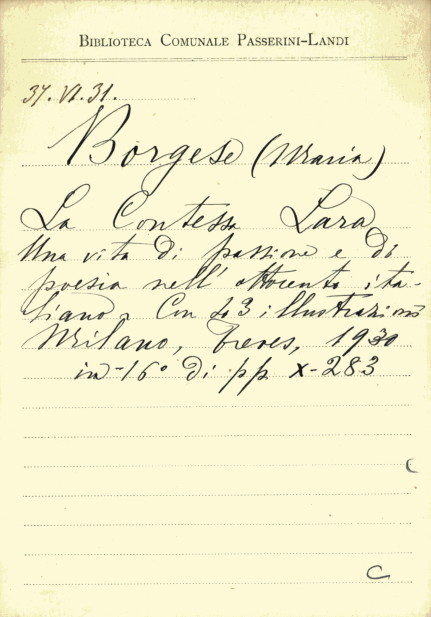 BIBLIOTECA COMUNALE PASSERINI-LANDI
37.VI.31.
Borgese (Maria)
La Contessa Lara
Una vita di passione e di
poesia nell'ottocento ita-
liano. Con 43 illustrazioni
Milano, Treves, 1930
in-16° di pp x-283
C